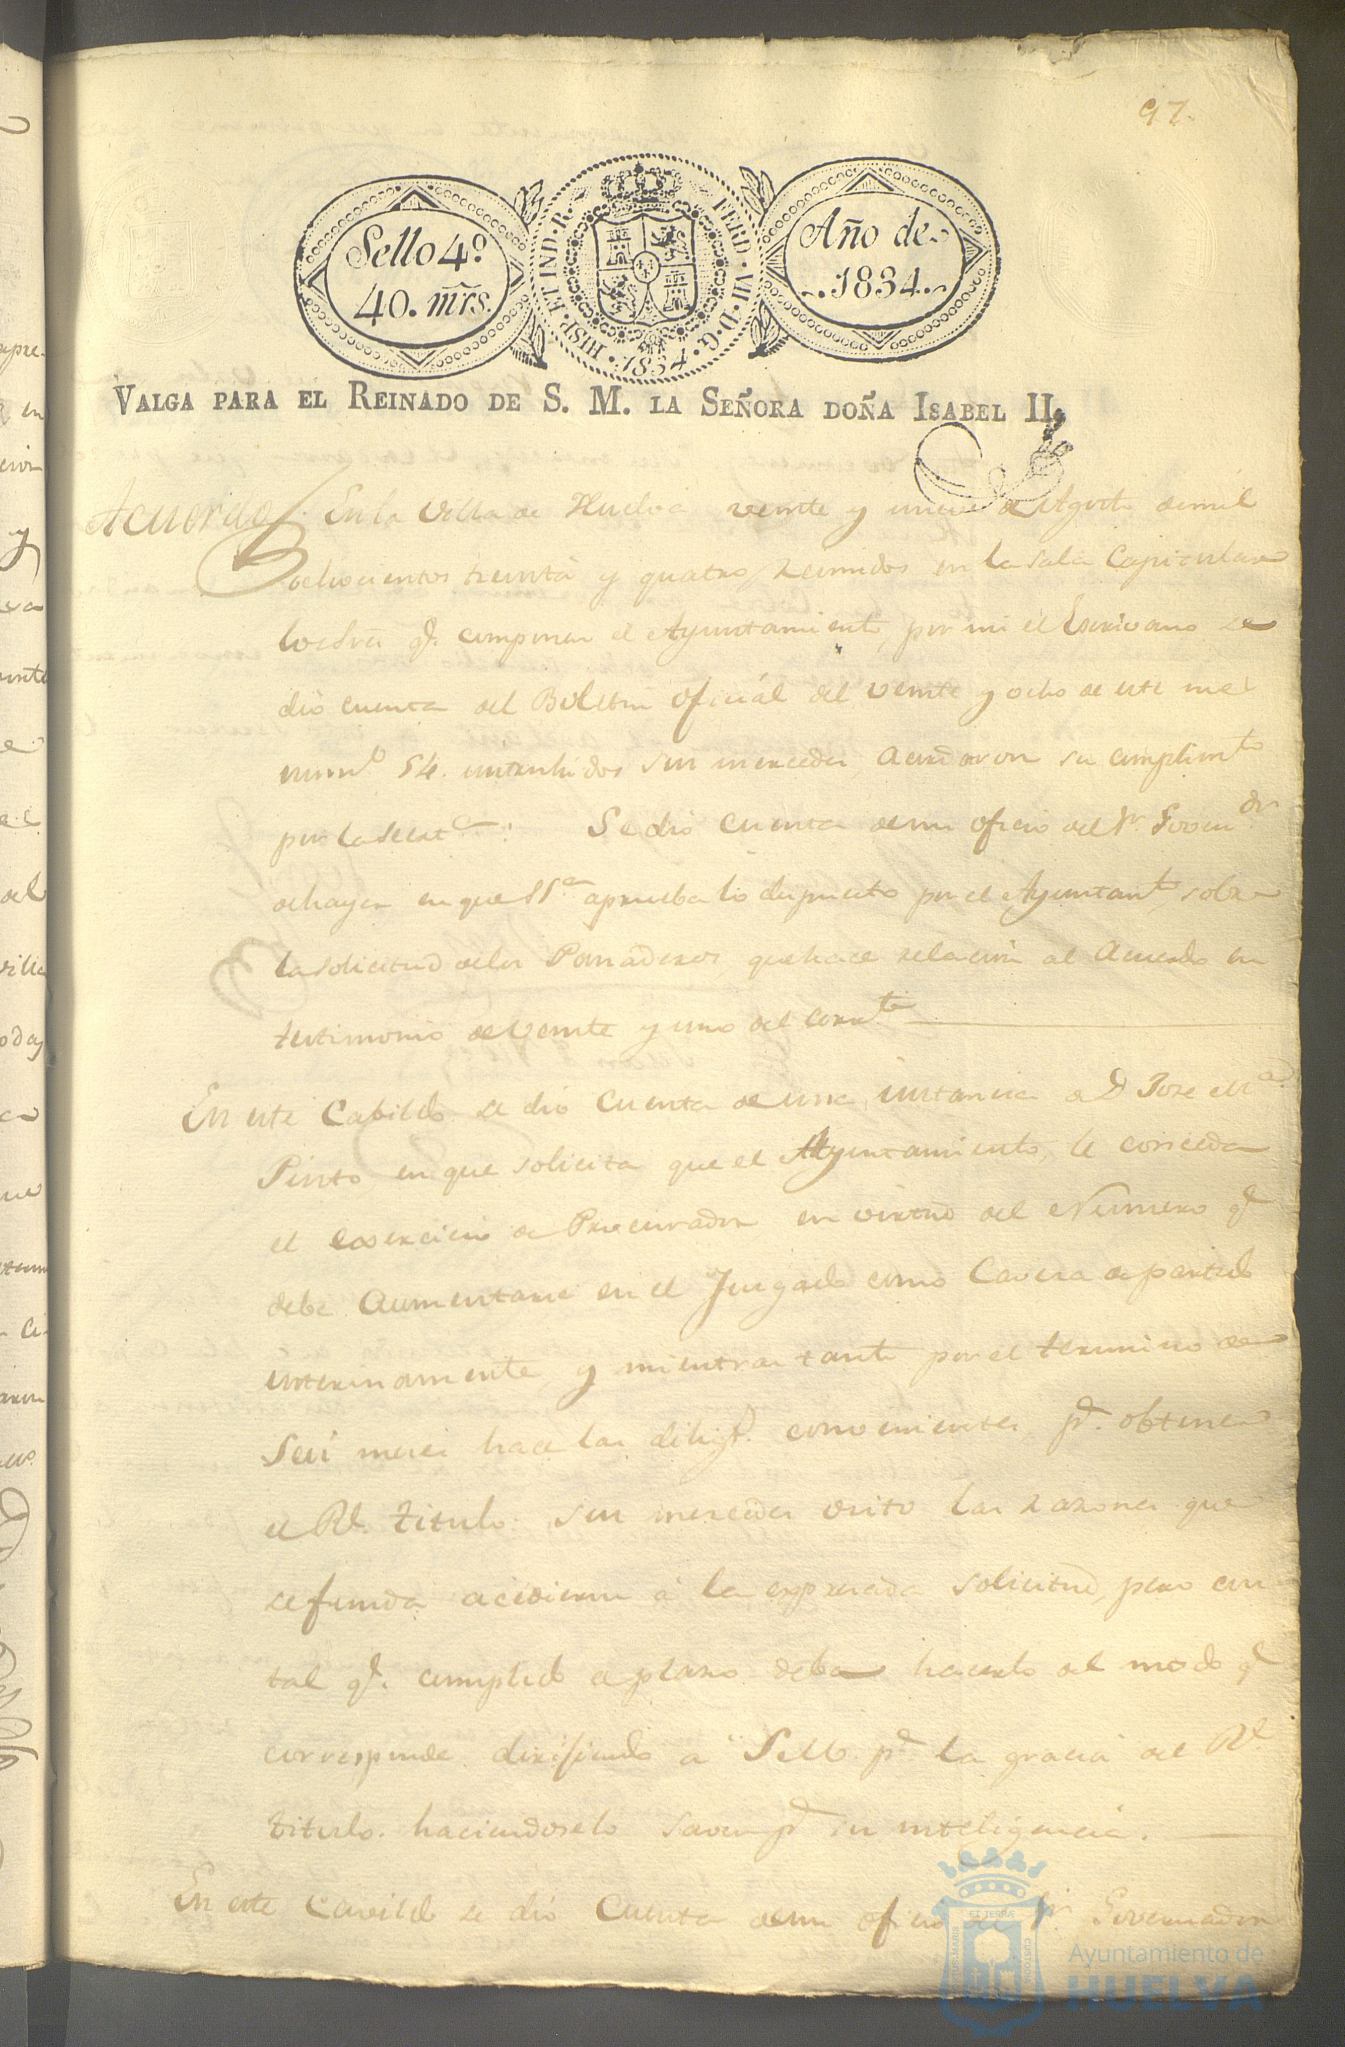 97.
Sello 4º
40. mrs.
HISP. ET IND. R. FERD. VII. D. G. 1834.
Año de
1834.
VALGA PARA EL REINADO DE S. M. LA SEÑORA DOÑA ISABEL II,
Acuerdo En la Villa de Huelva veinte y nueve de Agosto de mil
ochocientos treinta y quatro Reunidos en la sala Capitular
los Sres qe. componen el Ayuntamiento, por mi el Escrivano se
dió cuenta del Boletin oficial del veinte y ocho de este mes
numo 54. entendidos sus mercedes acordaron su cumplimto
por la Secreta. Se dió Cuenta de un oficio del Sr. Governdor
de hayer en que SSa aprueba lo dispuesto por el Ayuntamto, sobre
la solicitud de los Panaderos que hace relacion al Acuerdo en
testimonio de veinte y uno del corrte
En este Cabildo se dio Cuenta de una instancia de Dn Jose Ma
Pinto en que solicita que el Ayuntamiento, le conceda
el exercicio de Procurador en virtud del Numero qe
debe Aumentarse en el Juzgado como Cavesa de partido
interinamente, y mientras tanto por el termino de
Seis meses hace las diliga. convenientes pa. obtener
el Rl. titulo. sus mercedes visto las razones que
se funda acedieron á la expresada solicitud, pero con
tal qe. cumplido el plazo deba hacerlo del modo qe
corresponde dirijiendo á S.M. pa la gracia del Rl
titulo. haciendoselo saver pa su inteligencia.
En este Cavildo se dió Cuenta de un oficio del Sr. Governador
Ayuntamiento de
HUELVA